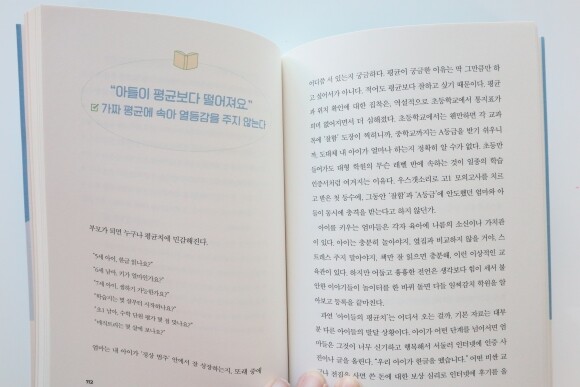 “아들이 평균보다 떨어져요.”
가짜 평균에 속아 열등감을 주지 않는다
부모가 되면 누구나 평균치에 민감해진다.
“5세 아이, 한글 뗐나요?”
“6세 남아, 키가 얼마인가요?”
“7세 아이, 줄넘기 가능한가요?”
“학습지는 몇 살부터 시작하나요?”
“초1 남아, 수학 단원 평가 몇 점 맞나요?”
엄마는 내 아이가 ‘정상 범주’ 안에서 잘 성장하는지, 또래 중에
112
있는지 궁금하다. 평균이 궁금한 이유는 딱 그만큼만 하
고 싶어서가 아니다. 적어도 평균보다 잘하고 싶기 때문이다. 평균
과 위치 확인에 대한 집착은, 역설적으로 초등학교에서 통지표가
하며 없어지면서 더 심해졌다. 초등학교에서는 웬만하면 각 교과
목에 ‘잘함’ 도장이 찍히니까, 중학교까지는 A등급을 받기 쉬우니
까, 도대체 내 아이가 얼마나 하는지 정확히 알 수가 없다. 초등만
들어가도 대형 학원의 무슨 레벨 반에 속하는 것이 일종의 학습
인증서처럼 여겨지는 이유다. 우스갯소리로 고1 모의고사를 치르
고 받은 첫 등수에, 그동안 ‘잘함’과 ‘A등급’에 안도했던 엄마와 아
들이 동시에 충격을 받는다고 하지 않던가.
아이를 키우는 엄마들은 각자 육아에 나름의 소신이나 가치관
이 있다. 아이는 충분히 놀아야지, 옆집과 비교하지 않을 거야, 스
트레스 주지 말아야지, 책만 잘 읽으면 충분해, 이런 이상적인 교
육관이 있다. 하지만 어둡고 흉흉한 전언은 생각보다 힘이 세서 불
안한 이야기들이 놀이터를 한 바퀴 돌면 다들 덜컥 겁이 학원을 알
아보고 등록을 끝마친다.
과연 ‘아이들의 평균치’는 어디서 오는 걸까. 기본 자료는 대부
분 다른 아이들의 발달 상황이다. 아이가 어떤 단계를 넘어서면 엄
마들은 그것이 너무 신기하고 행복해서 서둘러 인터넷에 인증 사
진이나 글을 올린다. “우리 아이가 한글을 뗐습니다.” 어떤 비싼 교
구나 전집을 사면 쓴 돈에 대한 보상 심리로 인터넷에 후기를 올